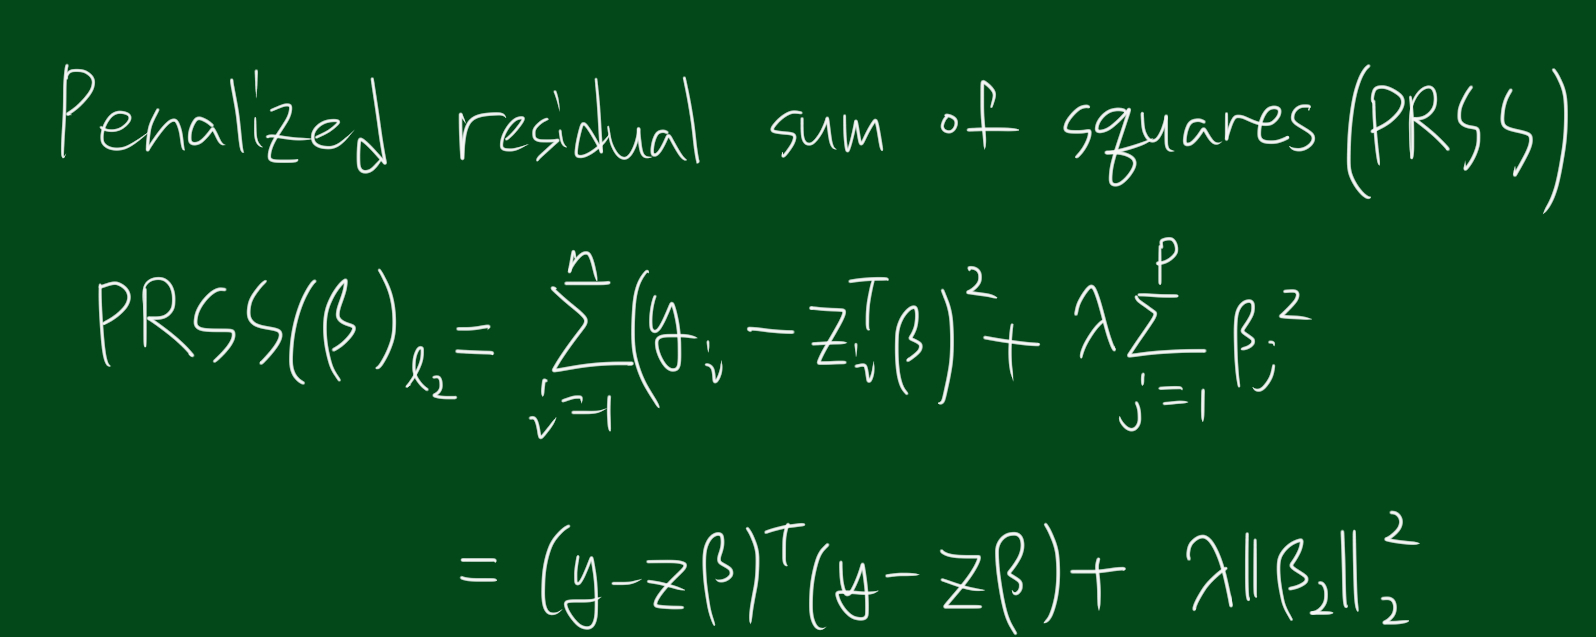 Penalized residual sum of squares (PRSS)
PRSS(β)_{ℓ_2} = \sum_{i=1}^{n} (y_i - z_i^T β)^2 + λ \sum_{j=1}^{p} β_j^2
= (y - zβ)^T (y - zβ) + λ‖β_2‖_2^2